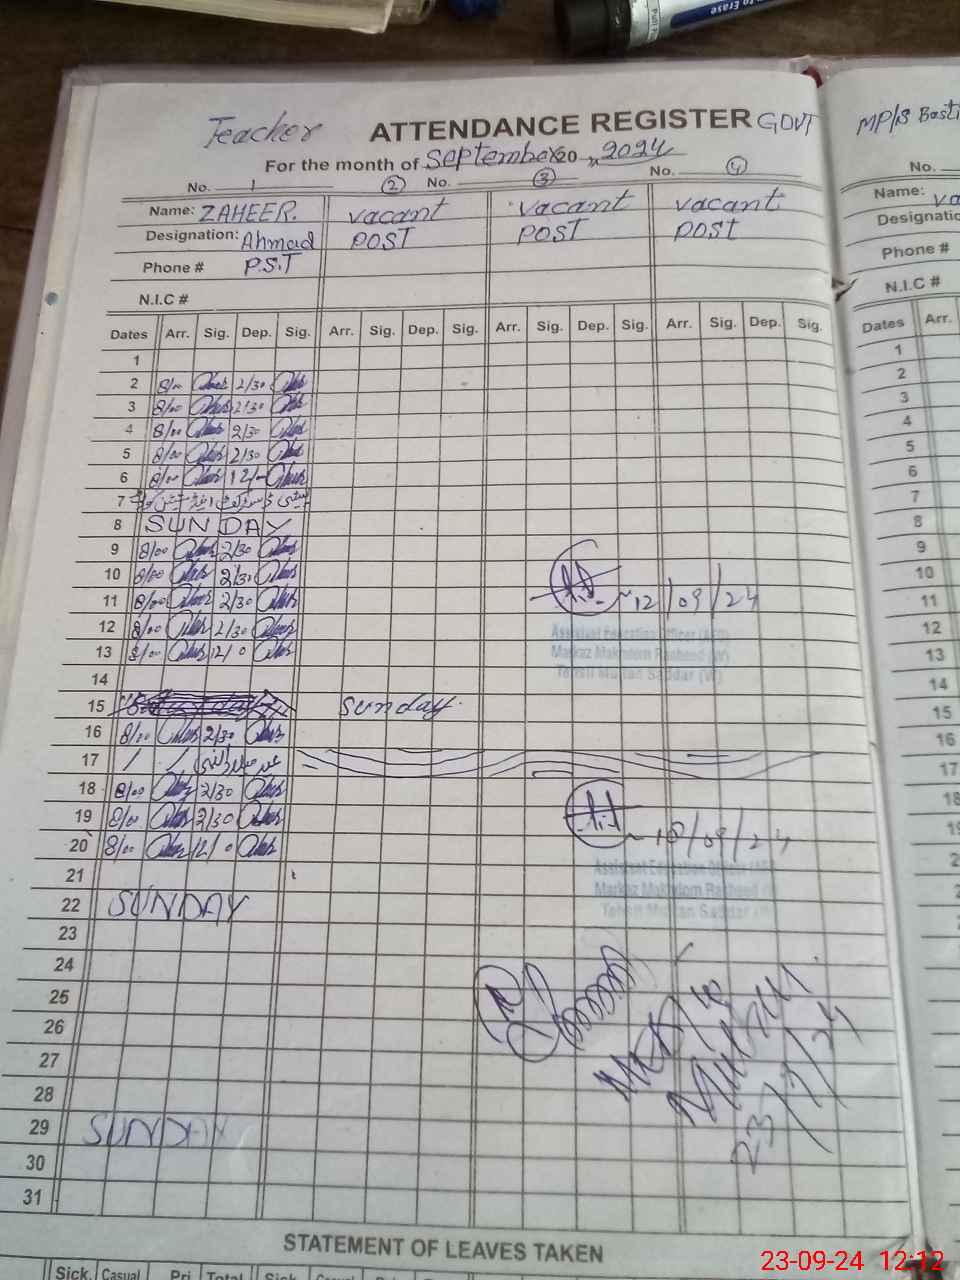 to Erase
Teacher ATTENDANCE REGISTER GOVT MP/S Basti
For the month of September 20 2024
No. 1 ② No. ③ No. ④ No.
Name: ZAHEER. vacant vacant vacant Name: va
Designation: Ahmad POST POST POST Designatio
Phone # P.S.T Phone #
N.I.C # N.I.C #
Dates Arr. Sig. Dep. Sig. Arr. Sig. Dep. Sig. Arr. Sig. Dep. Sig. Arr. Sig. Dep. Sig. Dates Arr.
1 1
2 8/00 2/30 2
3 8/00 2/30 3
4 8/00 2/30 4
5 8/00 2/30 5
6 8/00 12/- 6
7 7
8 SUNDAY 8
9 8/00 2/30 9
10 8/00 2/30 10
11 8/00 2/30 12/09/24 11
12 8/00 2/30 Assistant Education Officer 12
13 8/00 12/0 Markaz Makhdom Rasheed (W) 13
14 Tehsil Multan Saddar (W) 14
15 sunday. 15
16 8/00 2/30 16
17 17
18 8/00 2/30 18
19 8/00 2/30 19
20 8/00 12/0 18/09/24
21 Assistant Education Officer
22 SUNDAY Markaz Makhdom Rasheed
23 Tehsil Multan Saddar
24
25
26
27
28
29 SUNDAY
30
31
STATEMENT OF LEAVES TAKEN
Sick. Casual Pri Total Sick. Casual
23-09-24 12:12